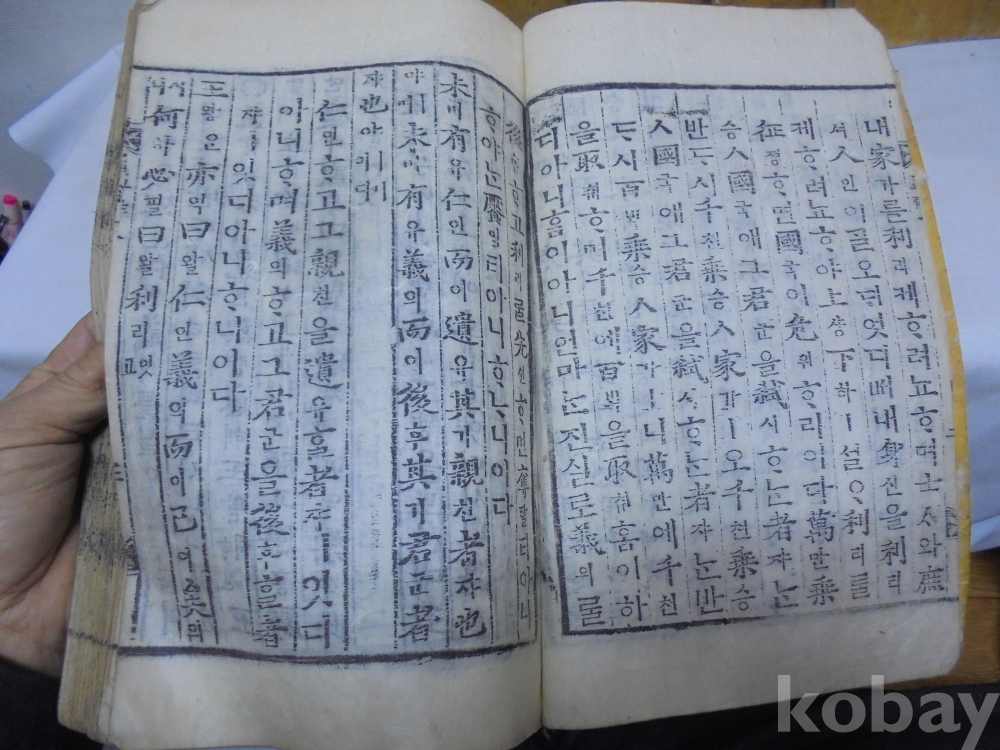 내家가를利리케ᄒᆞ려뇨ᄒᆞ며士ᄉᆞ와庶
셔人인이ᄀᆞᆯ오ᄃᆡ엇디ᄡᅥ내身신을利리
케ᄒᆞ려뇨ᄒᆞ야上샹下하ㅣ서ᄅᆞ利리를
征졍ᄒᆞ면國국이危위ᄒᆞ리이다萬만乘
승人國국애그君군을弑시ᄒᆞᄂᆞᆫ者쟈ᄂᆞᆫ
반ᄃᆞ시千쳔乘승人家가ㅣ오千쳔乘승
人國국애그君군을弑시ᄒᆞᄂᆞᆫ者쟈ᄂᆞᆫ반
ᄃᆞ시百ᄇᆡᆨ乘승人家가ㅣ니萬만에千쳔
을取ᄎᆔᄒᆞ며千쳔에百ᄇᆡᆨ을取ᄎᆔ홈이하
디아니홈이아니언마ᄂᆞᆫ진실로義의를
後후ᄒᆞ고利리를先션ᄒᆞ면奪탈티아니
ᄒᆞ야ᄂᆞᆫ饜염티아니ᄒᆞᄂᆞ니이다
未미有유仁인而이遺유其기親친者쟈也
야ㅣ며未미有유義의而이後후其기君군者
쟈也야ㅣ니이다
仁인ᄒᆞ고親친을遺유ᄒᆞᆯ者쟈ㅣ잇디
아니ᄒᆞ며義의ᄒᆞ고그君군을後후ᄒᆞᆯ者
쟈ㅣ잇디아니ᄒᆞ니이다
王왕은亦역曰왈仁인義의而이已이矣의
니시何하必필曰왈利리잇고
kobay